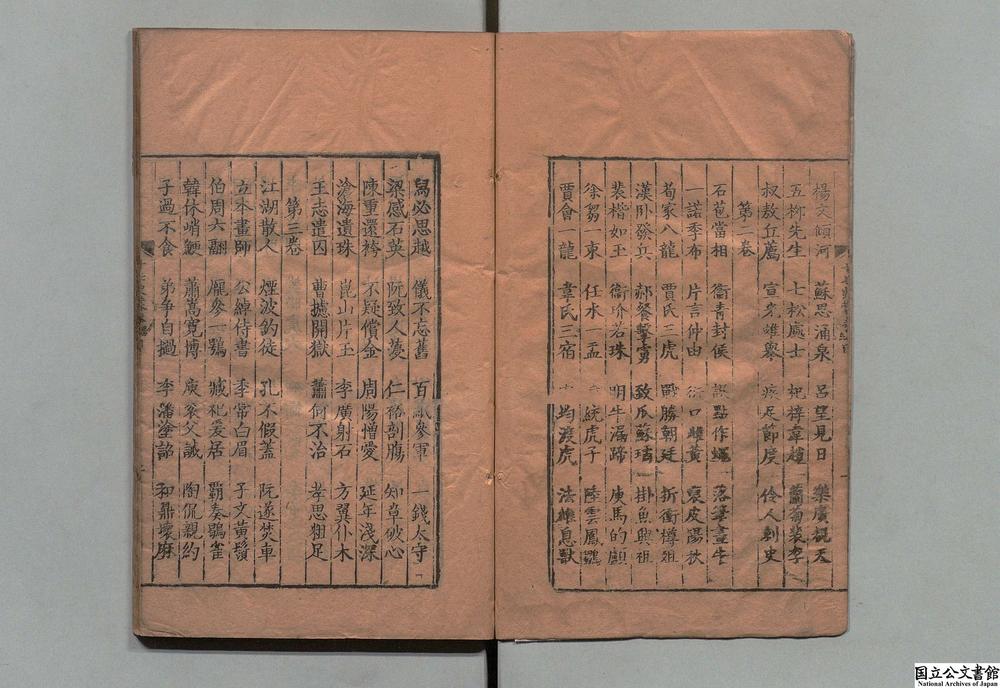 楊文傾河 蘇思涌泉 呂望見日 樂廣覩天
五柳先生 七松處士 杞梓韋趙 蕭萄裴李
叔敖丘薦 宣 雄舉 疾足節度 伶人刺史
第二卷
石苞當相 衞青封侯 誤點作蠅 落筆畫牛
一諾季布 片言仲由 衍口雌黃 裒皮陽秋
荀家八龍 賈氏三虎 戰勝朝廷 折衝樽俎
漢卧發兵 郝餐擊虜 致瓜蘇瓊 掛魚興祖
裴楷如玉 衞玠若珠 明牛漏蹄 庾馬的顱
徐芻一束 任水一盂 統虎子 陸雲鳳雛
賈會一龍 韋氏三宿 均渡虎 法雄息獸
舄必思越 儀不忘舊 百 參軍 一錢太守
梁感石英 阮致人薓 仁 剖膓 知章破心
陳重還袴 不疑償金 周陽憎愛 延年淺深
滄海遺珠 崑山片玉 李廣射石 方翼仆木
王志遣囚 曹攄開獄 蕭何不治 孝思狙足
第三卷
江湖散人 煙波釣徒 孔不假蓋 阮遂焚車
立本畫師 公綽侍書 季常白眉 子文黃鬚
伯周六翮 龎參一鶚 臧祀爰居 霸奏鶡雀
韓休峭鯁 蕭嵩寬博 庾袞父誡 陶侃親約
子過不食 弟爭自撾 李藩塗詔 和鼎壞麻
国立公文書館
National Archives of Japan